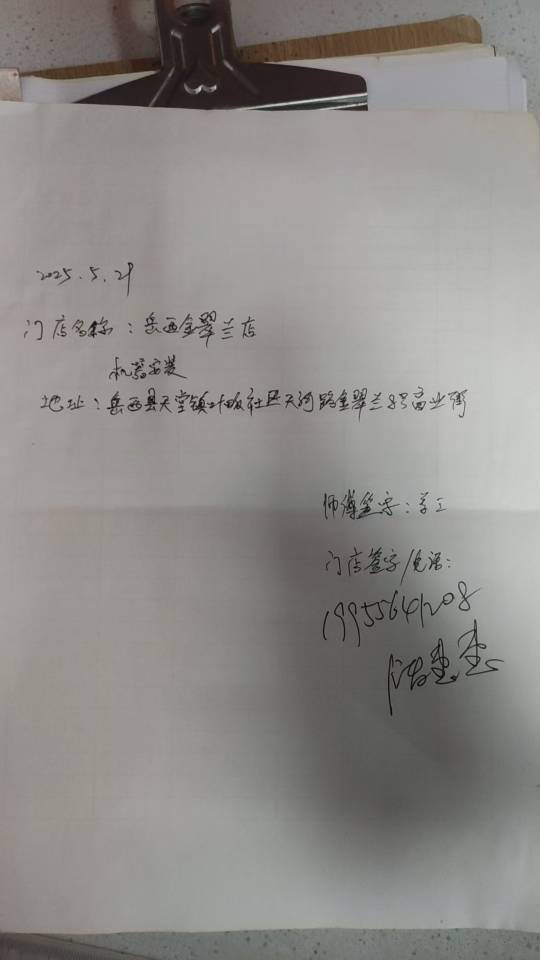 2025.5.29
门店名称：岳西金翠兰店
机器安装
地址：岳西县天堂镇叶畈社区天河路金翠兰8号商业街
师傅签字：李工
门店签字/电话：
19955641208